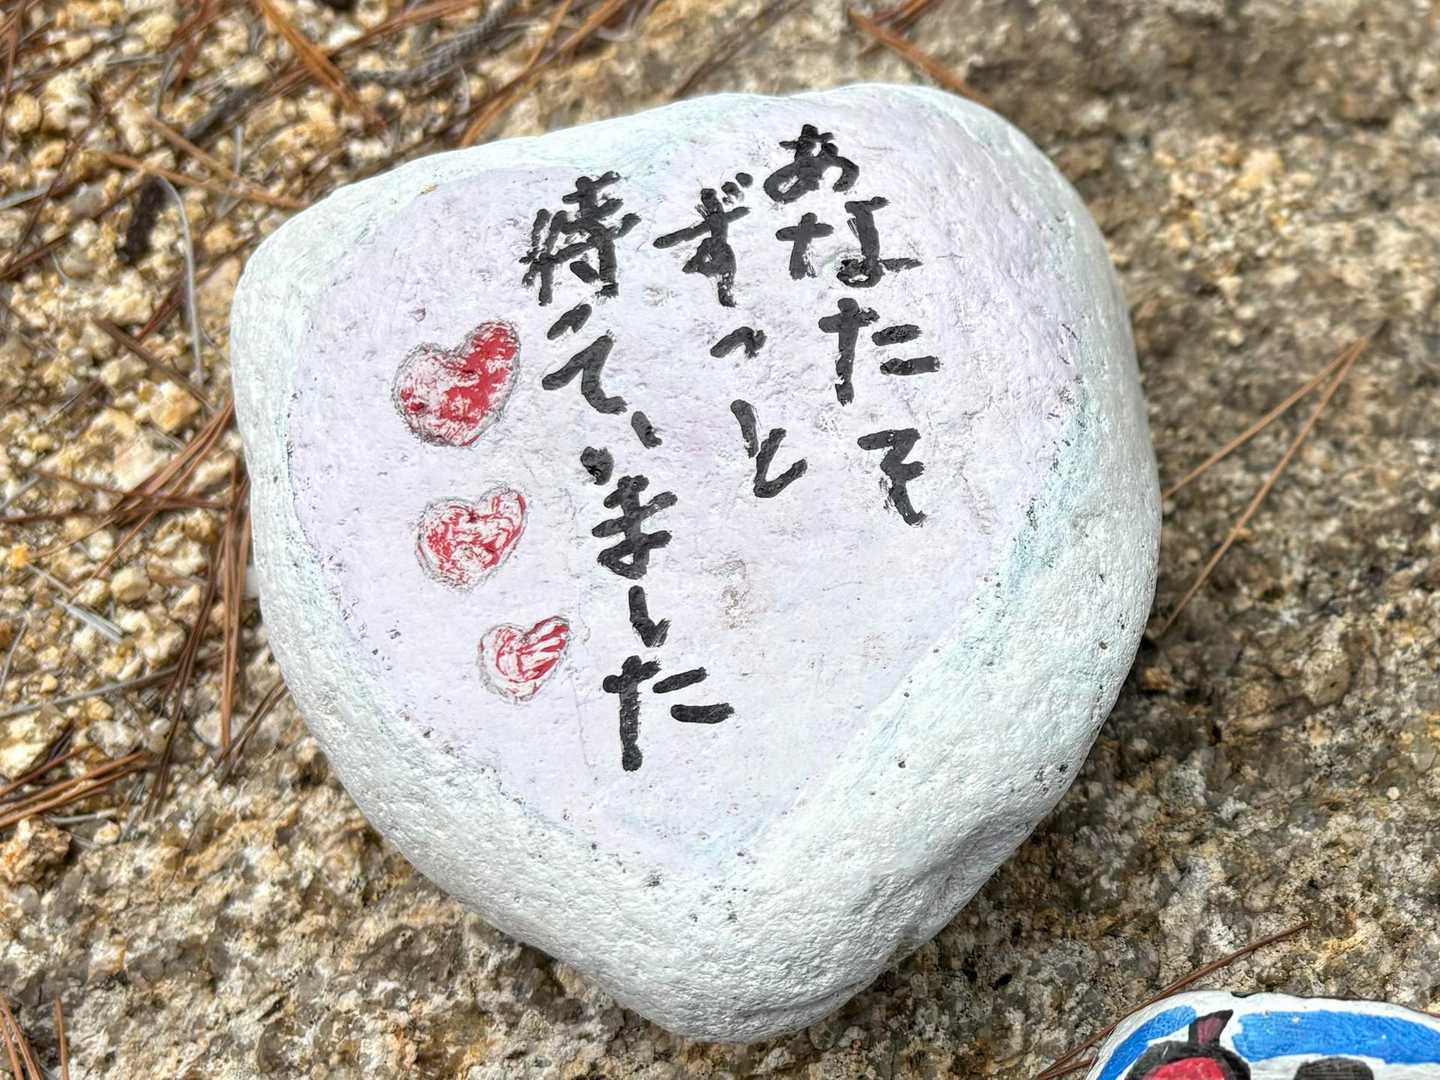 あなたを
ずっと
待っていました